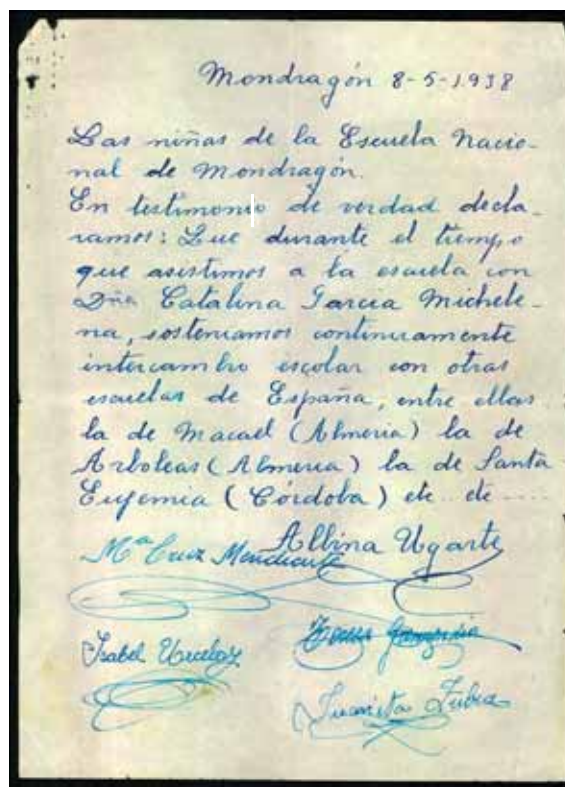 Mondragón 8-5-1938
Las niñas de la Escuela Nacio-
nal de Mondragón.
En testimonio de verdad decla-
ramos: Que durante el tiempo
que asistimos a la escuela con
Dña Catalina Garcia Michele-
na, sosteniamos continuamente
intercambio escolar con otras
escuelas de España, entre ellas
la de Macael (Almeria) la de
Arboleas (Almeria) la de Santa
Eufemia (Córdoba) etc. etc....
Albina Ugarte
Mª Cruz
Isabel
Juanita Zubia